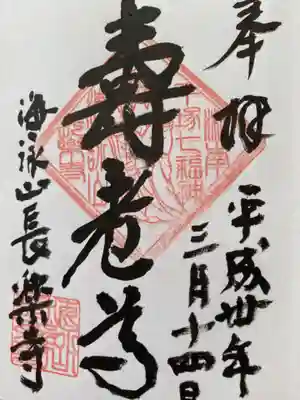 奉拝
平成卅年
三月十四日
壽老尊
海詠山長樂寺